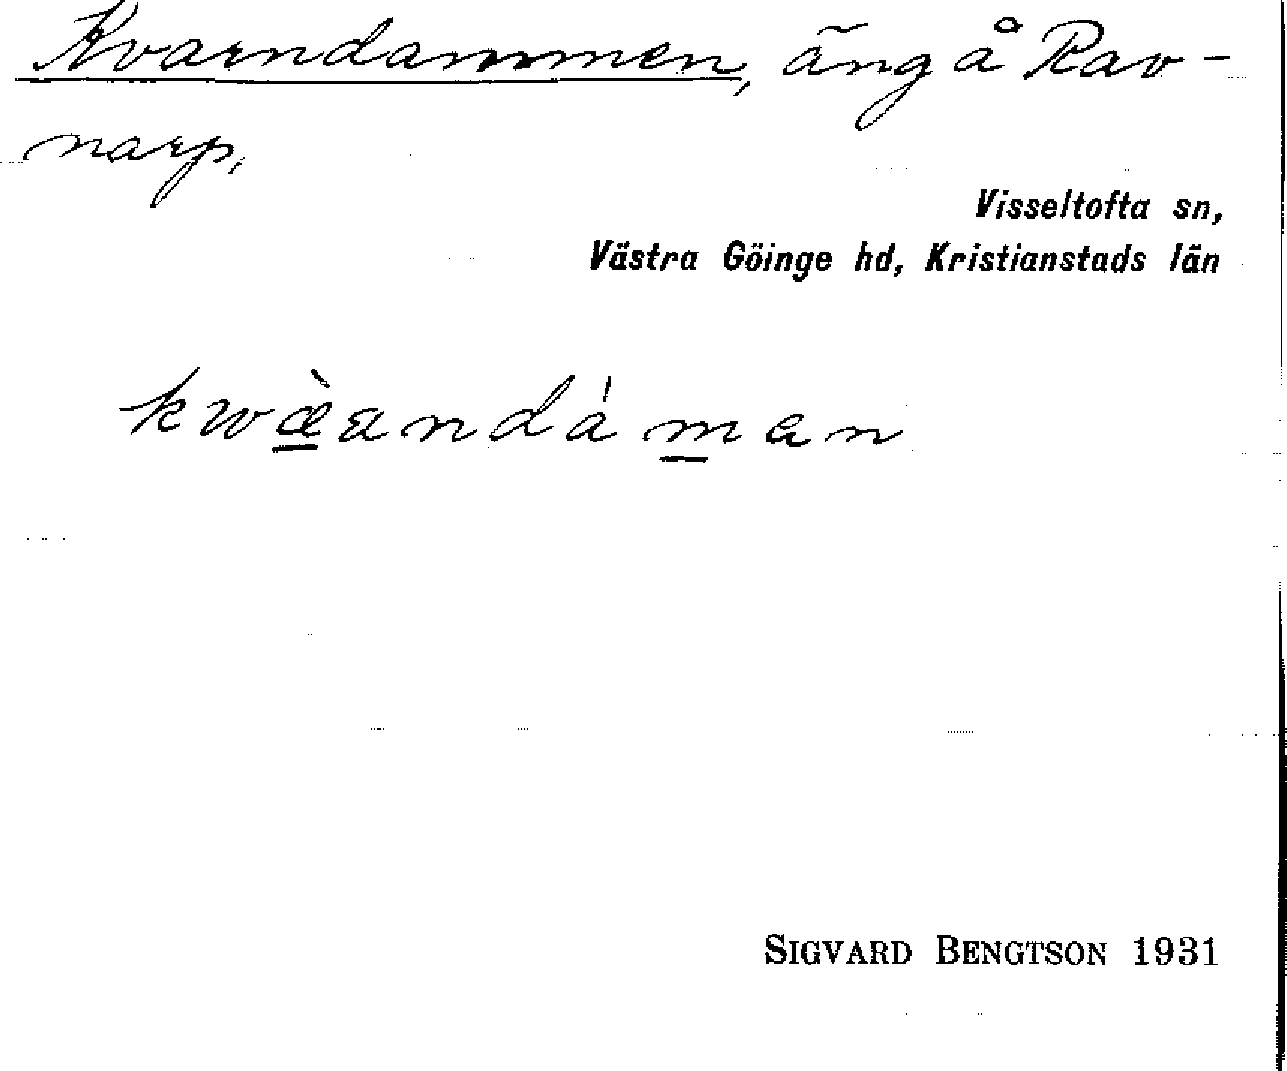 Kvarndammen, äng å Rav-
narp.
Visseltofta sn,
Västra Göinge hd, Kristianstads län
kwæ̠̀andám̠an
SIGVARD BENGTSON 1931